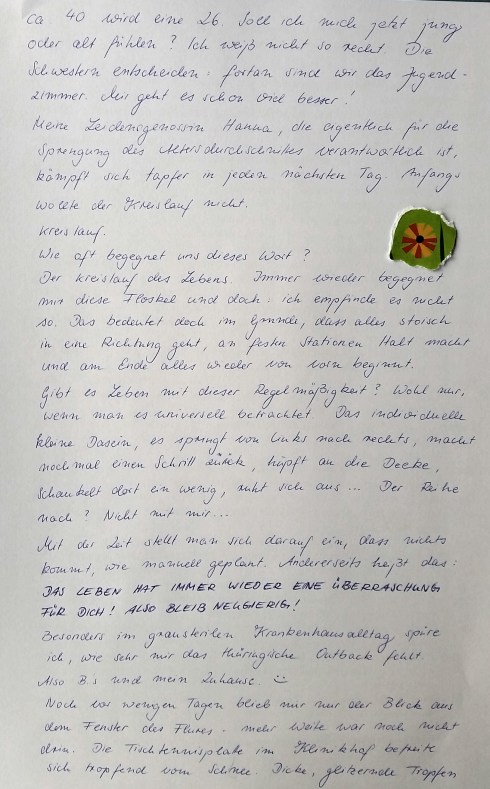 ca. 40 wird eine 26. Soll ich mich jetzt jung
oder alt fühlen? Ich weiß nicht so recht. Die
Schwestern entscheiden: fortan sind wir das Jugend-
zimmer. Mir geht es schon viel besser!
Meine Leidensgenossin Hanna, die eigentlich für die
Sprengung des Altersdurchschnittes verantwortlich ist,
kämpft sich tapfer in jeden nächsten Tag. Anfangs
wollte der Kreislauf nicht.
Kreislauf.
Wie oft begegnet uns dieses Wort?
Der Kreislauf des Lebens. Immer wieder begegnet
mir diese Floskel und doch: ich empfinde es nicht
so. Das bedeutet doch im Grunde, dass alles stoisch
in eine Richtung geht, an festen Stationen Halt macht
und am Ende alles wieder von vorn beginnt.
Gibt es Leben mit dieser Regelmäßigkeit? Wohl nur,
wenn man es universell betrachtet. Das individuelle
kleine Dasein, es springt von links nach rechts, macht
nochmal einen Schritt zurück, hüpft an die Decke,
schaukelt dort ein wenig, ruht sich aus... Der Reihe
nach? Nicht mit mir...
Mit der Zeit stellt man sich darauf ein, dass nichts
kommt, wie manuell geplant. Andererseits heißt das:
DAS LEBEN HAT IMMER WIEDER EINE ÜBERRASCHUNG
FÜR DICH! ALSO BLEIB NEUGIERIG!
Besonders im grausterilen Krankenhausalltag spüre
ich, wie sehr mir das thüringische Outback fehlt.
Also B.s und mein Zuhause. :)
Noch vor wenigen Tagen blieb mir nur der Blick aus
dem Fenster des Flures - mehr Weite war noch nicht
drin. Die Tischtennisplatte im Klinikhof befreite
sich tropfend vom Schnee. Dicke, glitzernde Tropfen